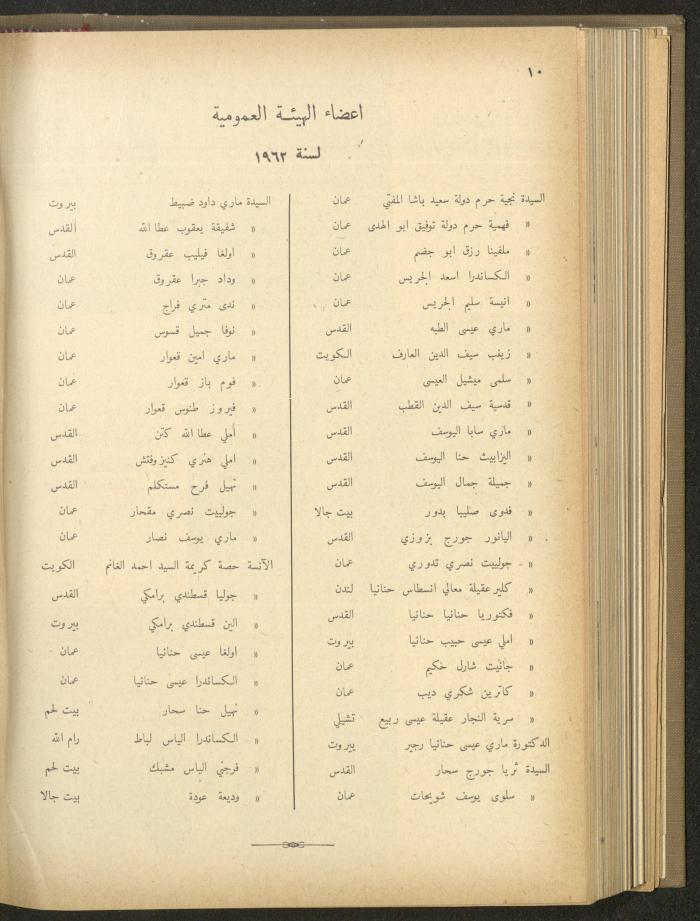 ١٠
اعضاء الهيئة العمومية
لسنة ١٩٦٢
السيدة نجية حرم دولة سعيد باشا المفتي عمان
« فهمية حرم دولة توفيق ابو الهدى عمان
« ملفينا رزق ابو جضم عمان
« الكساندرا اسعد الجريس عمان
« انيسة سليم الجريس عمان
« ماري عيسى الطبه القدس
« زينب سيف الدين العارف الكويت
« سلمى ميشيل العيسى عمان
« قدسية سيف الدين القطب القدس
« ماري سابا اليوسف القدس
« اليزابيث حنا اليوسف القدس
« جميلة جمال اليوسف القدس
« فدوى صليبا بدور بيت جالا
« اليانور جورج بزوزي القدس
« جولييت نصري تدوري عمان
« كلير عقيلة معالي انسطاس حنانيا لندن
« فكتوريا حنانيا حنانيا القدس
« املي عيسى حبيب حنانيا بيروت
« جانيت شارل حكيم عمان
« كاترين شكري ديب عمان
« سرية النجار عقيلة عيسى ربيع تشيلي
الدكتورة ماري عيسى حنانيا رجير بيروت
السيدة ثريا جورج سحار القدس
« سلوى يوسف شويحات عمان
السيدة ماري داود ضبيط بيروت
« شفيقة يعقوب عطا الله القدس
« اولغا فيليب عقروق القدس
« وداد جبرا عقروق عمان
« ندى متري فراج عمان
« نوفا جميل قسوس عمان
« ماري امين قعوار عمان
« فوم باز قعوار عمان
« فيروز طنوس قعوار عمان
« أملي عطا الله كتن القدس
« املي هنري كنيزوفتش القدس
« نهيل فرح مستكلم القدس
« جولييت نصري مقحار عمان
« ماري يوسف نصار عمان
الآنسة حصة كريمة السيد احمد الغانم الكويت
« جوليا قسطندي برامكي القدس
« الين قسطندي برامكي بيروت
« اولغا عيسى حنانيا عمان
« الكساندرا عيسى حنانيا عمان
« نهيل حنا سحار بيت لحم
« الكساندرا الياس لباط رام الله
« فرجني الياس مشبك بيت لحم
« وديعة عودة بيت جالا